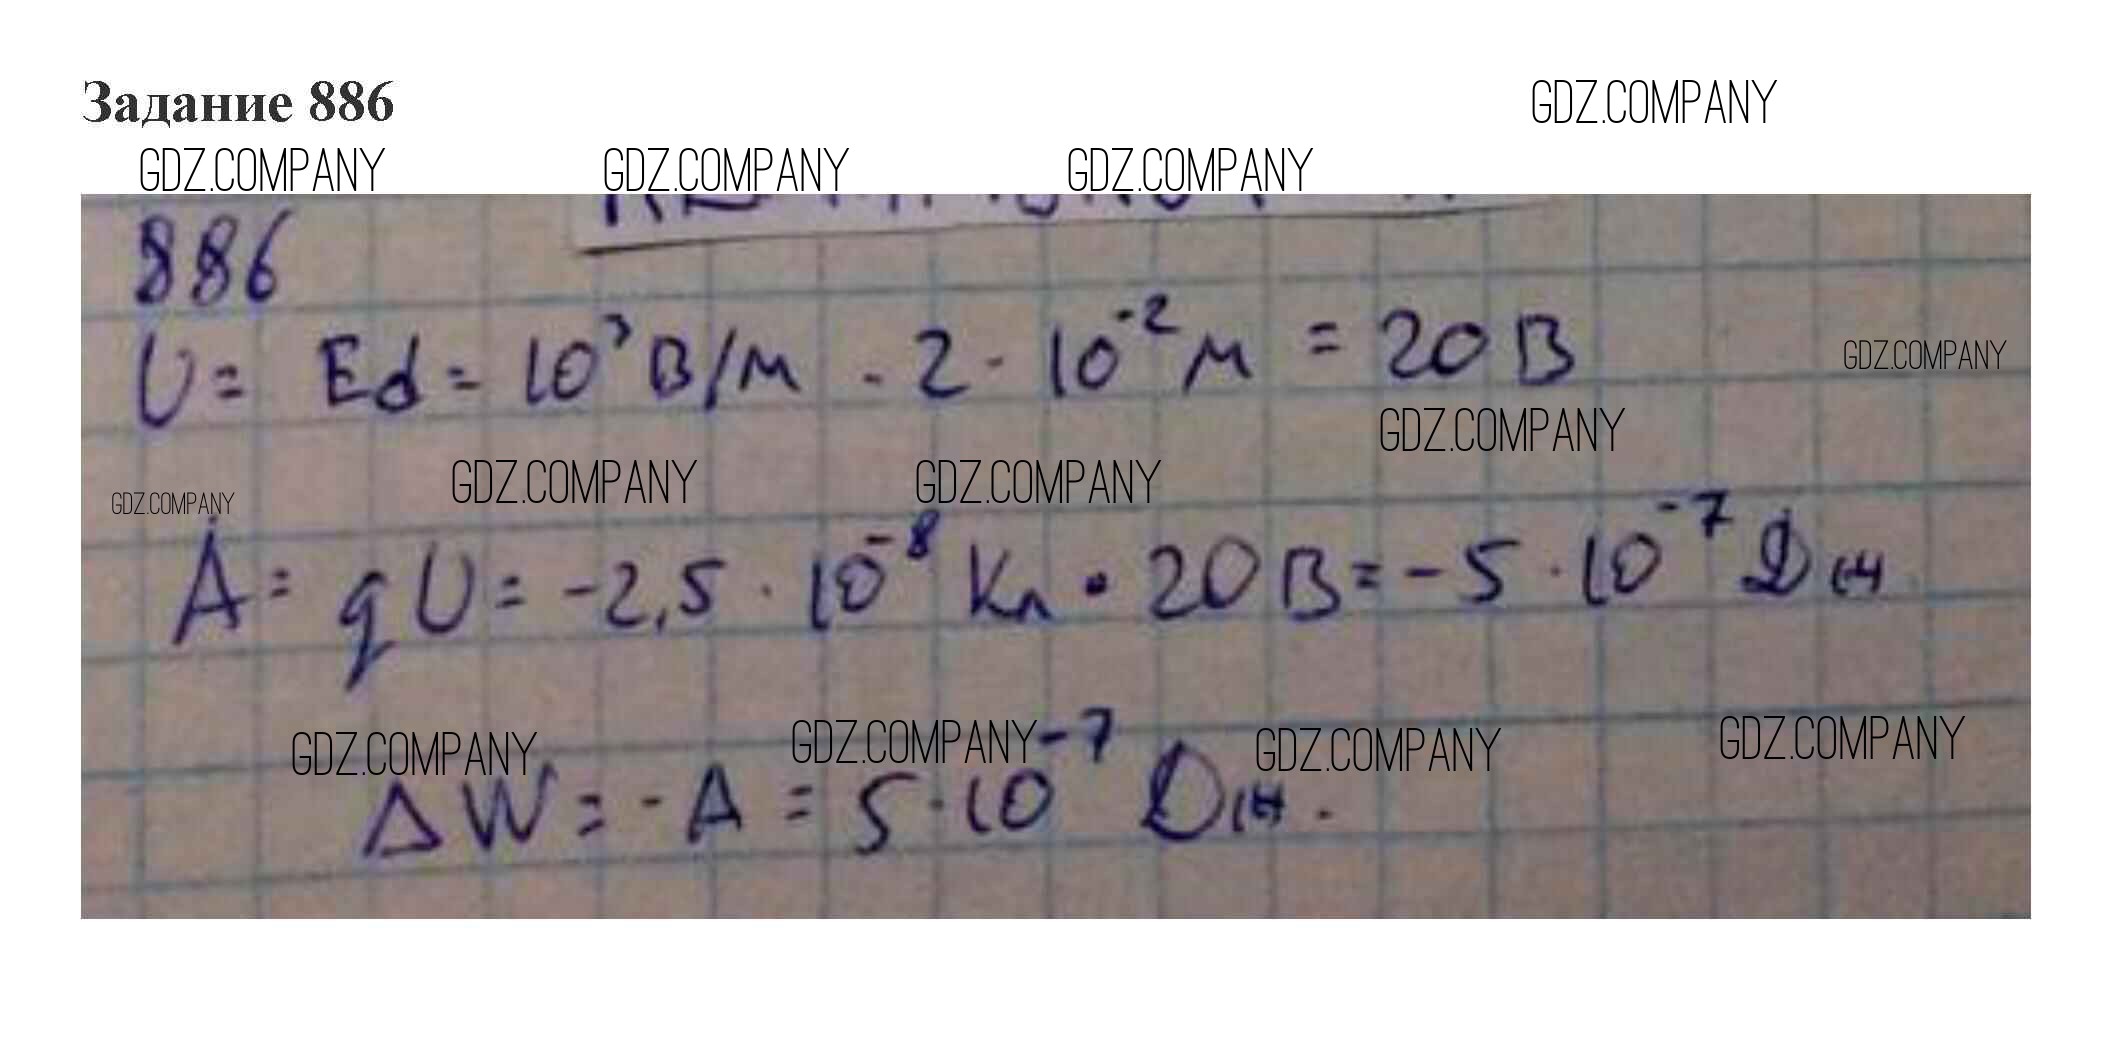 Задание 886
GDZ.COMPANY
GDZ.COMPANY GDZ.COMPANY GDZ.COMPANY
886
U = Ed = 10³ В/м · 2 · 10⁻² м = 20 В
GDZ.COMPANY
GDZ.COMPANY
GDZ.COMPANY GDZ.COMPANY
GDZ.COMPANY
A = qU = -2,5 · 10⁻⁸ Кл · 20 В = -5 · 10⁻⁷ Дж
GDZ.COMPANY GDZ.COMPANY GDZ.COMPANY GDZ.COMPANY
ΔW = -A = 5 · 10⁻⁷ Дж.